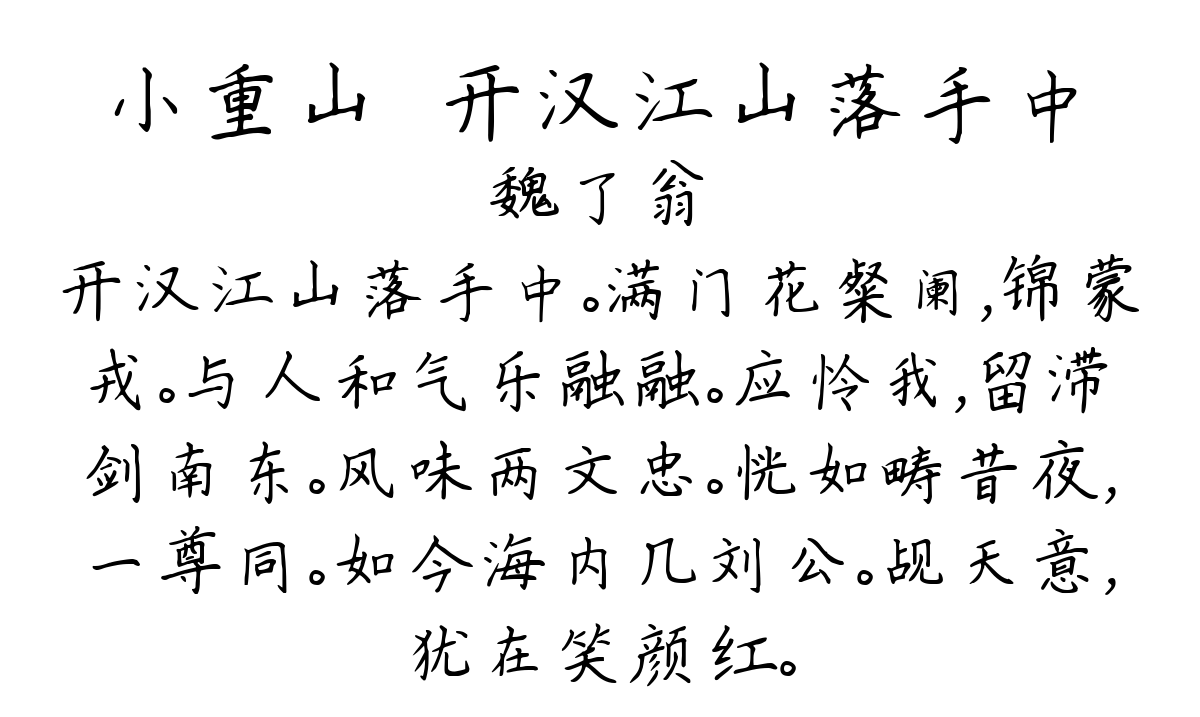 小重山 开汉江山落手中
魏了翁
开汉江山落手中。满门花粲阑,锦蒙
戎。与人和气乐融融。应怜我,留滞
剑南东。风味两文忠。恍如畴昔夜,
一尊同。如今海内几刘公。觇天意,
犹在笑颜红。